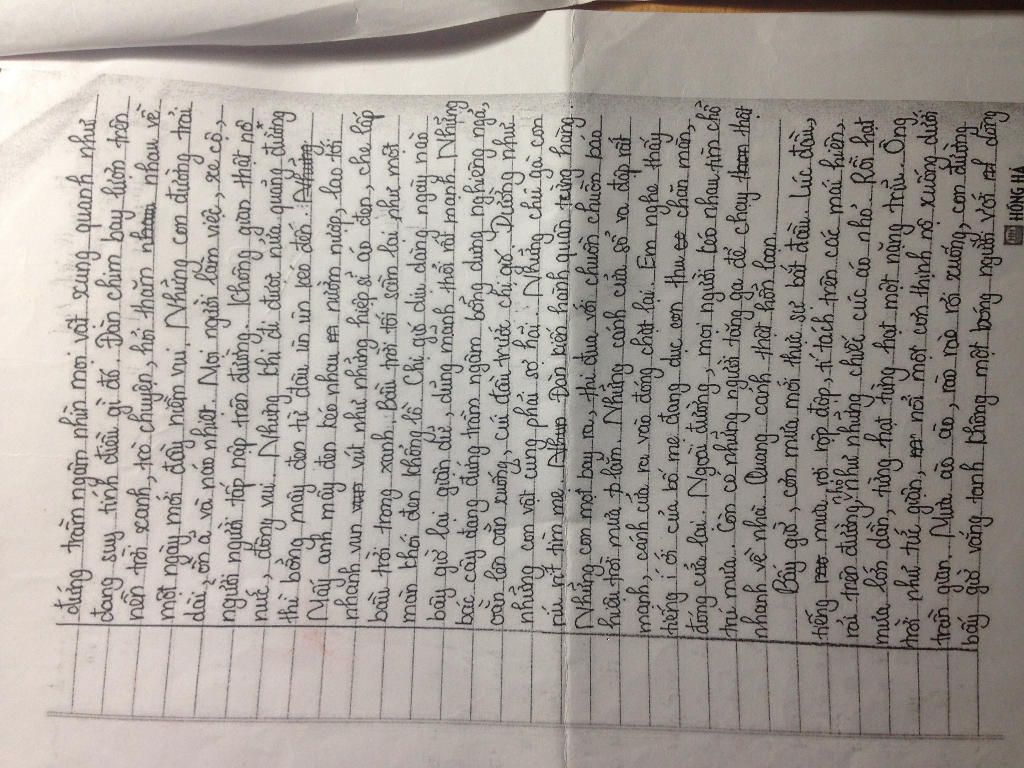 đứng trầm ngâm nhìn mọi vật xung quanh như
đang suy tính điều gì đó. Đàn chim bay lượn trên
nền trời xanh, trò chuyện, hỏi thăm nhau về
một ngày mới đầy niềm vui. Những con đường trải
dài, ồn ả và náo nhiệt. Mọi người làm việc, xe cộ,
người người tấp nập trên đường. Không gian thật nô
nức, đông vui. Nhưng chỉ đi được nửa quãng đường
thì bỗng mây đen từ đâu ùn ùn kéo đến.
Mấy anh mây đen kéo nhau nườm nượp, lao tới
nhanh vun vút như những hiệp sĩ áo đen, che lấp
bầu trời trong xanh. Bầu trời tối sầm lại như một
màn khói đen khổng lồ. Chị gió dịu dàng ngày nào
bây giờ lại giận dữ, dùng mạnh thổi rất mạnh. Những
bác cây đang đứng trầm ngâm bỗng dưng nghiêng ngả,
oằn lên oằn xuống, cúi đầu trước chị gió. Dường như
những con vật cũng phải sợ hãi. Những chú gà con
ríu rít tìm mẹ. Đàn kiến hành quân từng hàng.
Những con mối bay ra, thi đua với chuồn chuồn báo
hiệu trời mưa p lắm. Những cánh cửa sổ va đập rất
mạnh, cánh cửa ra vào đóng chặt lại. Em nghe thấy
tiếng í ới của bố mẹ đang dục con thu chăn màn,
đóng cửa lại. Ngoài đường, mọi người kéo nhau tìm chỗ
trú mưa. Còn có những người tăng ga để chạy thật
nhanh về nhà. Quang cảnh thật hỗn loạn.
Bấy giờ, cơn mưa mới thực sự bắt đầu. Lúc đầu,
tiếng mưa rơi rộp độp, tí tách trên các mái hiên,
rải trên đường như những chiếc cúc áo nhỏ nhỏ. Rồi hạt
mưa lớn dần, từng hạt từng hạt một nặng trĩu. Ông
trời như tức giận, nổi một cơn thịnh nộ xuống dưới
trần gian. Mưa ào ào, rào rào rơi xuống, con đường
bây giờ vắng tanh không một bóng người với dòng
HỒNG HÀ